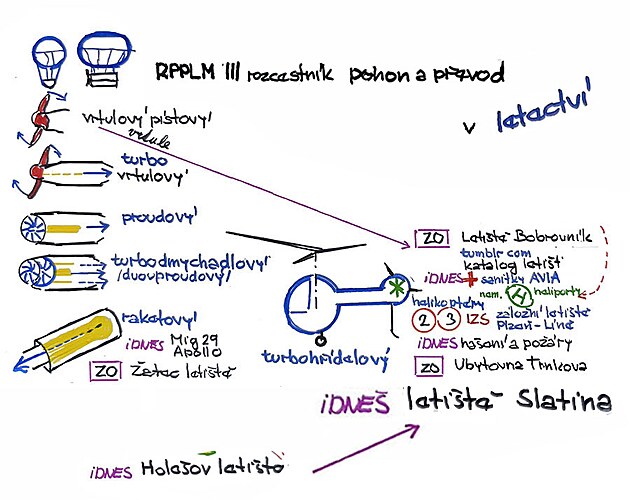 RPPLM III rozcestník pohon a převod
v letectví
vrtulový pístový
vrtule
turbo
vrtulový
proudový
turbodmychadlový
/dvouproudový/
raketový
iDNES Mig 29
Apollo
ZO Žatec letiště
turbohřídelový
ZO Letiště Bobrovník
tumblr com
katalog letišť
iDNES + sanitky AVIA
nam. H heliporty
helikoptéry
2 3 IZS záložní letiště
Plzeň-Líně
iDNES hašení a požáry
ZO Ubytovna Trnkova
iDNEŠ letiště Slatina
iDNES Holašov letiště